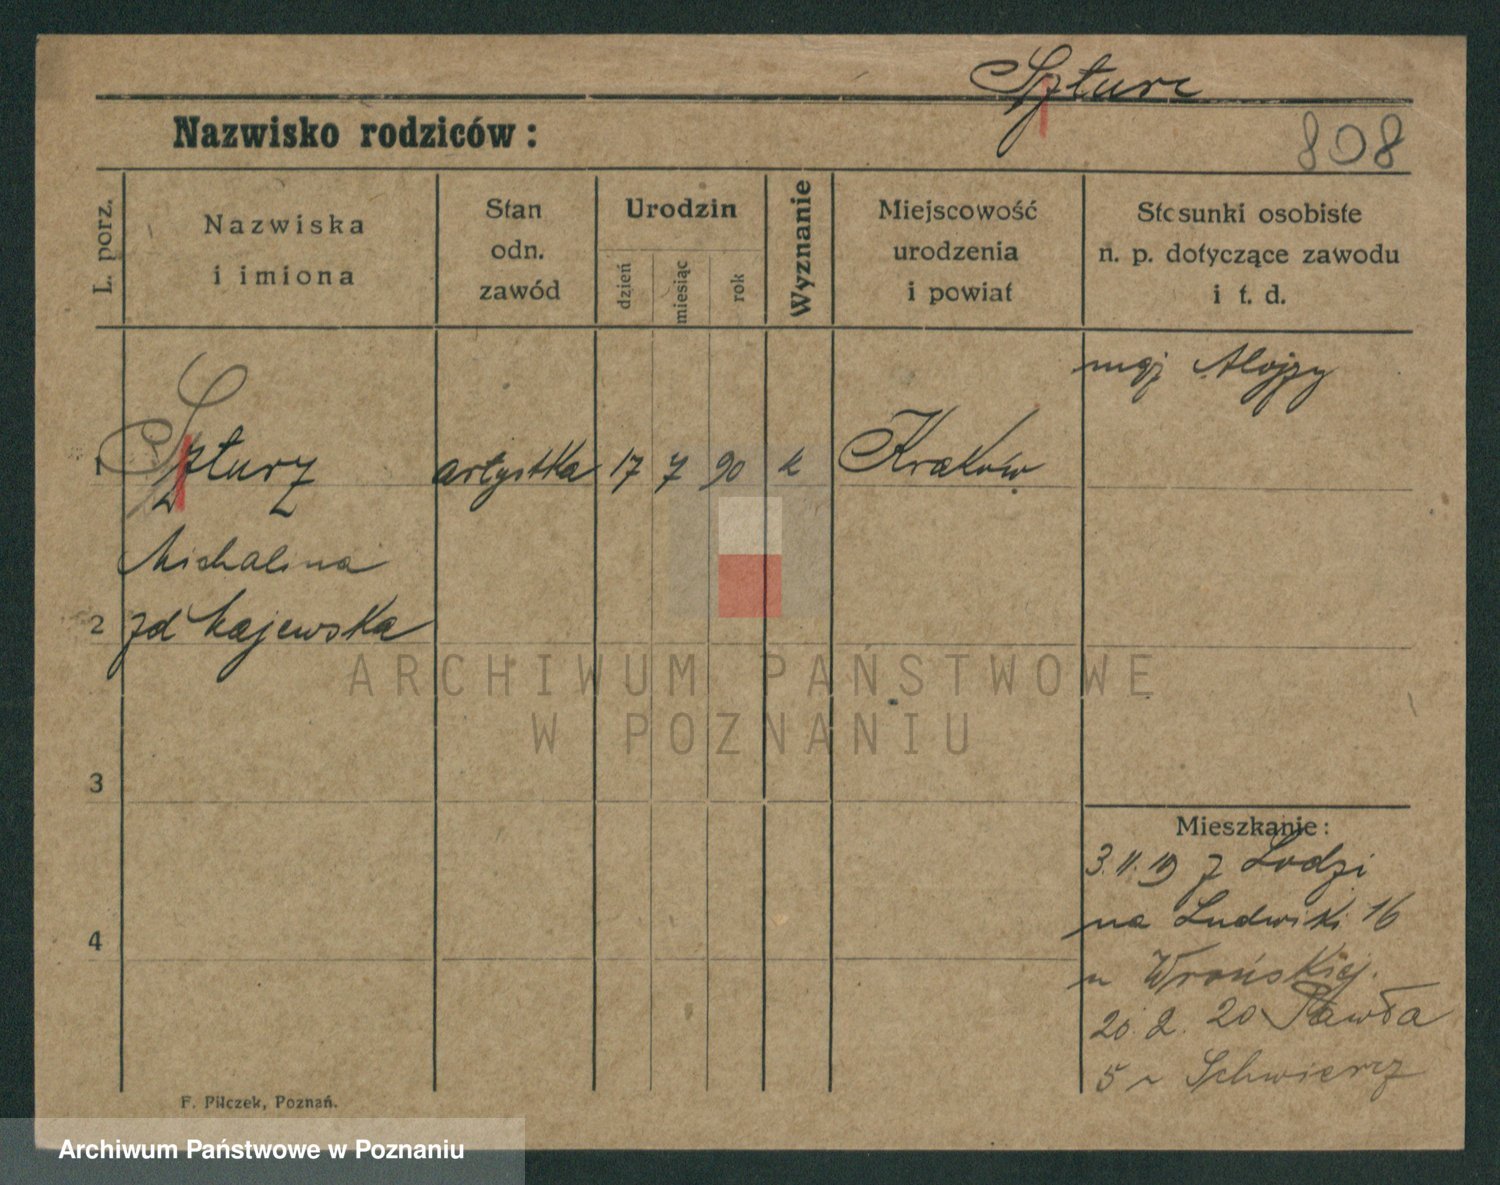 Szturc
Nazwisko rodziców:
808
L. porz.
Nazwiska
i imiona
Stan
odn.
zawód
Urodzin
dzień
miesiąc
rok
Wyznanie
Miejscowość
urodzenia
i powiat
Stosunki osobiste
n. p. dotyczące zawodu
i t. d.
mąż Alojzy
1 Szturz artystka 17 7 90 k Kraków
Michalina
2 zd Majewska
ARCHIWUM PAŃSTWOWE
W POZNANIU
3
Mieszkanie:
3. 11. 19 z Lodzi
na Ludwiki 16
4
u Wrońskiej.
20. 2. 20 Pawła
5 Schwiercz
F. Pilczek, Poznań.
Archiwum Państwowe w Poznaniu